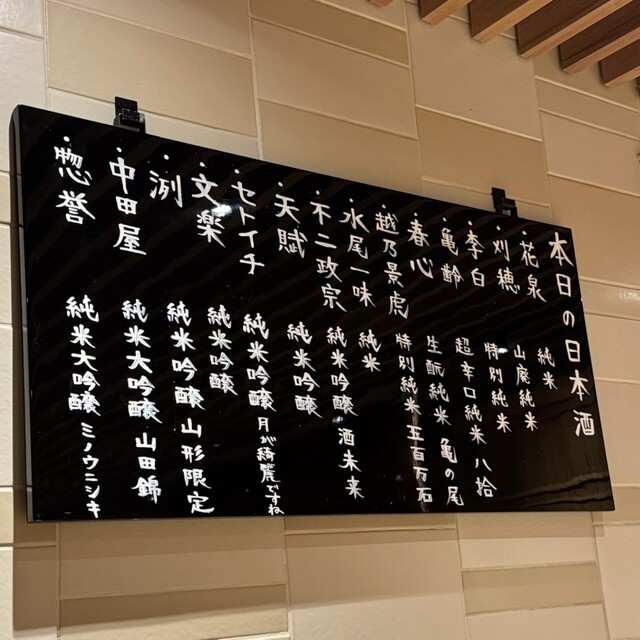 本日の日本酒
・花泉 純米
・刈穂 山廃純米
・李白 特別純米
・亀齢 超辛口純米 八拾
・春心 生酛純米 亀の尾
・越乃景虎 特別純米 五百万石
・水尾一味 純米
・不二政宗 純米吟醸 酒未来
・天賦 純米吟醸
・セトイチ 純米吟醸 月が綺麗ですね
・文楽 純米吟醸
・洌 純米吟醸 山形限定
・中田屋 純米大吟醸 山田錦
・惣誉 純米大吟醸 ミノウニシキ